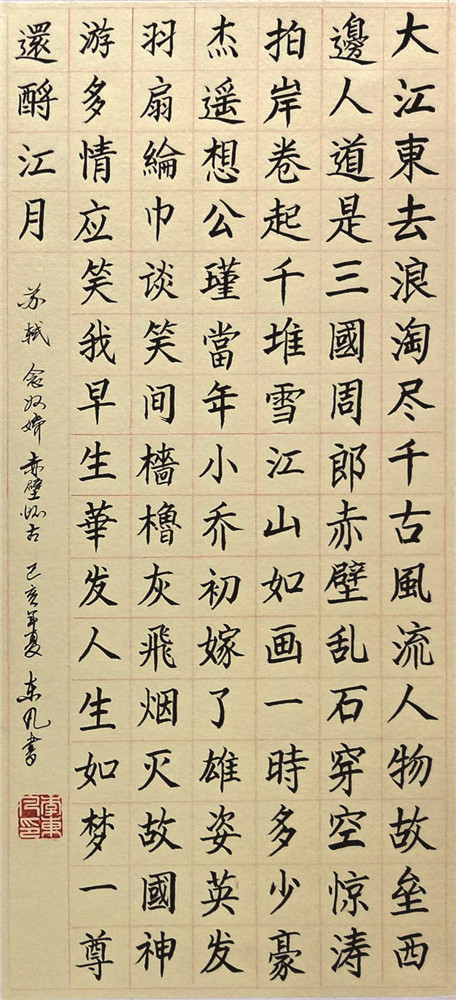 大江東去浪淘尽千古風流人物故垒西
邊人道是三國周郎赤壁乱石穿空惊涛
拍岸卷起千堆雪江山如画一時多少豪
杰遥想公瑾當年小乔初嫁了雄姿英发
羽扇綸巾谈笑间檣櫓灰飛烟灭故國神
游多情应笑我早生華发人生如梦一尊
還酹江月
苏轼 念奴娇 赤壁怀古 己亥年夏 东凡書